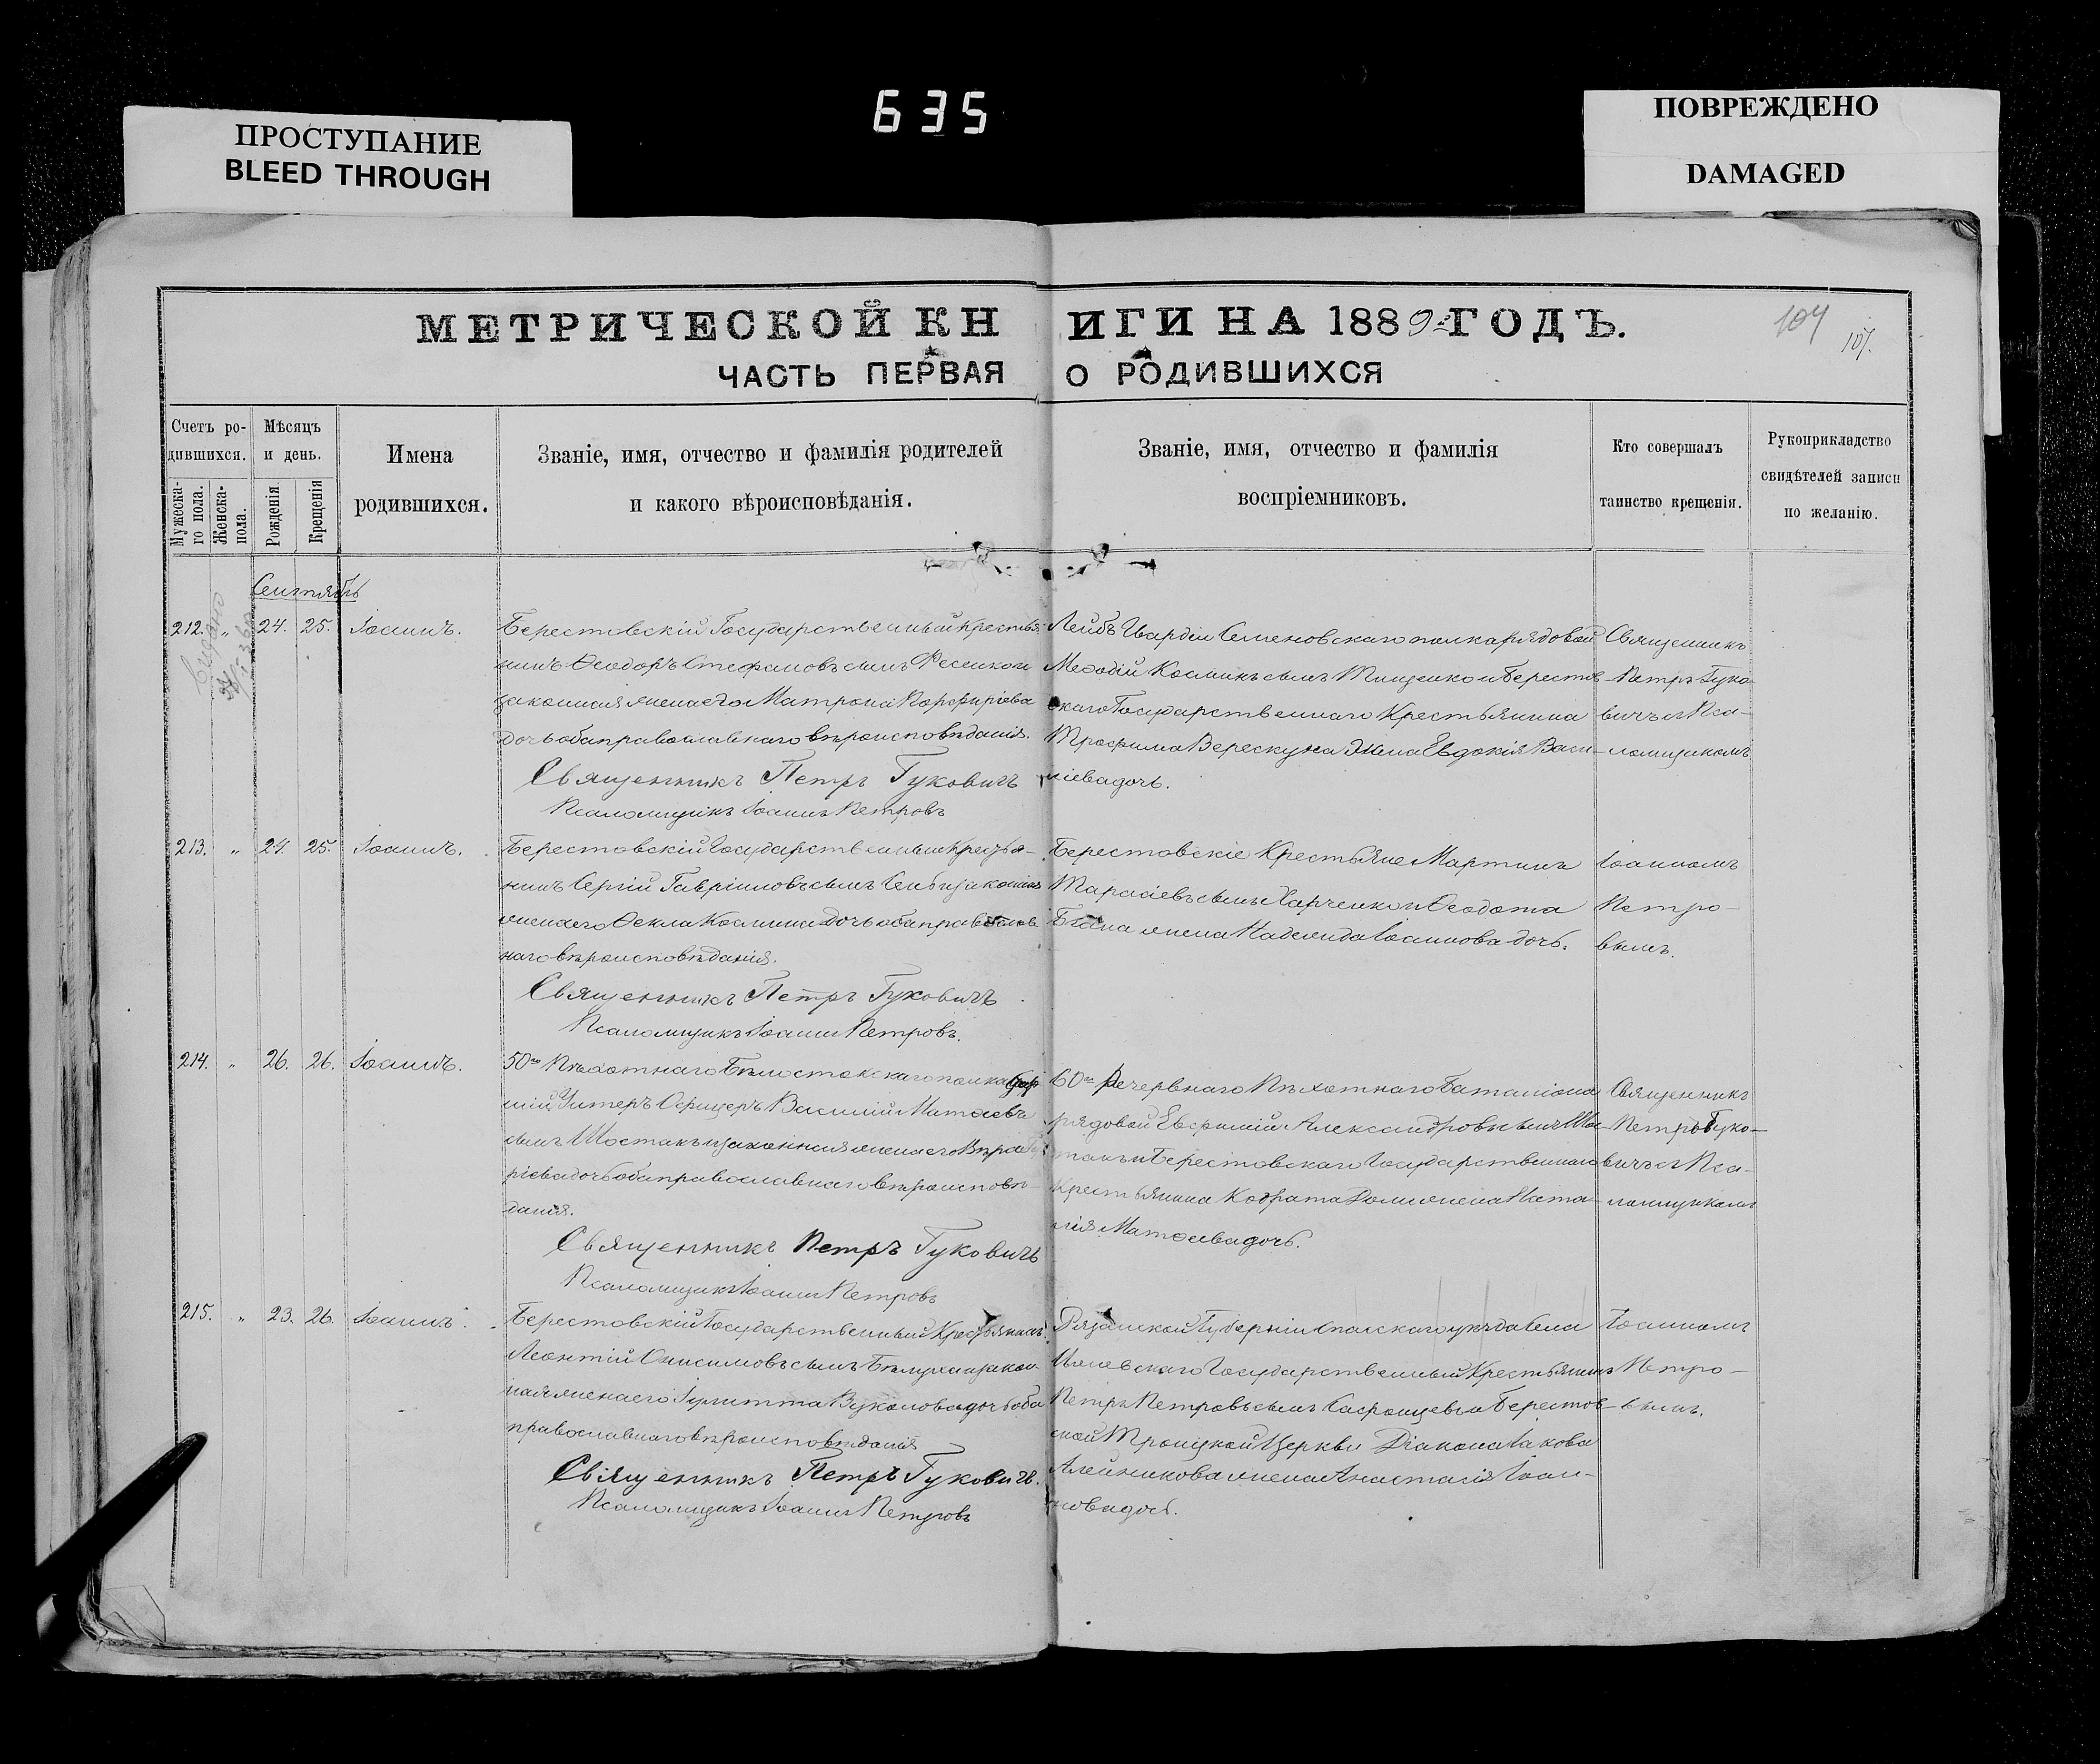 635
ПРОСТУПАНИЕ
BLEED THROUGH
ПОВРЕЖДЕНО
DAMAGED
МЕТРИЧЕСКОЙ КНИГИ НА 1889 ГОДЪ.
104
107.
ЧАСТЬ ПЕРВАЯ О РОДИВШИХСЯ
Счетъ ро-
дившихся.
Мужеска-
го пола.
Женска-
пола.
Мѣсяцъ
и день.
Рожденія
Крещенія
Имена
родившихся.
Званіе, имя, отчество и фамилія родителей
и какого вѣроисповѣданія.
Званіе, имя, отчество и фамилія
воспріемниковъ.
Кто совершалъ
таинство крещенія.
Рукоприкладство
свидѣтелей записи
по желанію.
Сентябрь
212. " 24. 25. Іоаннъ.
Берестовскій Государственный крестья-
нинъ Ѳеодоръ Стефановъ сынъ и
законная жена его Матрона Порфиріева
дочь оба православнаго вѣроисповѣданія.
Священникъ Петръ Гуковичъ
Псаломщикъ Іоаннъ Петровъ
Лейбъ Гвардіи Семеновскаго полка рядовой
Меѳодій Косминъ сынъ Тищенко и Берестов-
скаго Государственнаго Крестьянина
Трофима Верескуна жена Евдокія Васи-
ліева дочь.
Священникъ
Петръ Гуко-
вичъ съ Пса-
ломщикомъ
213. " 24. 25. Іоаннъ.
Берестовскій Государственный Крестья-
нинъ Сергій Гавріиловъ сынъ и законная
жена его Ѳекла Космина дочь оба православ-
наго вѣроисповѣданія.
Священникъ Петръ Гуковичъ
Псаломщикъ Іоаннъ Петровъ.
Берестовскіе Крестьяне Мартинъ
Тарасіевъ сынъ Харченко и Ѳеодота
жена Надежда Іоаннова дочь.
Іоанномъ
Петро-
вымъ.
214. " 26. 26. Іоаннъ.
50го Пѣхотнаго Бѣлостокскаго полка
Унтеръ Офицеръ Василій Матѳеевъ
сынъ Шостакъ и законная жена его Вѣра
ріева дочь оба православнаго вѣроисповѣ-
данія.
Священникъ Петръ Гуковичъ
Псаломщикъ Іоаннъ Петровъ
60го Резервнаго Пѣхотнаго Баталіона
рядовой Евфимій Александровъ сынъ Шос-
такъ и Берестовскаго Государственнаго
Крестьянина Кодрата жена Ната-
лія Матѳеева дочь.
Священникъ
Петръ Гуко-
вичъ съ Пса-
ломщикомъ
215. " 23. 26. Іоаннъ.
Берестовскій Государственный Крестьянинъ
Леонтій Онисимовъ сынъ и закон-
ная жена его Іулитта Вуколова дочь оба
православнаго вѣроисповѣданія
Священникъ Петръ Гуковичъ.
Псаломщикъ Іоаннъ Петровъ
Рязанской Губерніи Спасскаго уѣзда села
Государственный Крестьянинъ
Петръ Петровъ сынъ и Берестов-
ской Троицкой Церкви Діакона Іакова
Алейникова жена Анастасія Іоан-
нова дочь.
Іоанномъ
Петро-
вымъ.